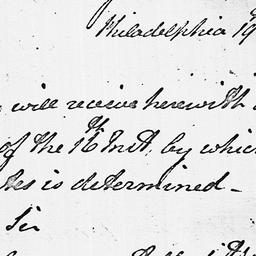 Philadelphia 19
will receive herewith
of the 16th Inst. by which
tes is determined -
Sir